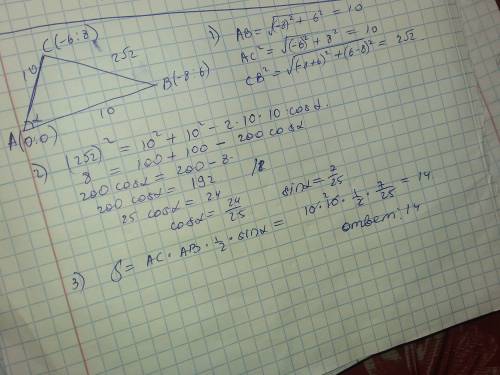 C(-6; 8)
10
2√2
B(-8; 6)
10
α
A(0;0)
1) AB = √(-8)² + 6² = 10
AC² = √(-6)² + 8² = 10
CB² = √(-8+6)² + (6-8)² = 2√2
2) (2√2)² = 10² + 10² - 2·10·10·cosα.
8 = 100 + 100 - 200 cosα
200 cosα = 200 - 8.
200 cosα = 192 /8
25 cosα = 24
cosα = 24/25
sinα = 7/25
3) S = AC · AB · 1/2 · sinα = 10·10 · 1/2 · 7/25 = 14.
ответ: 14